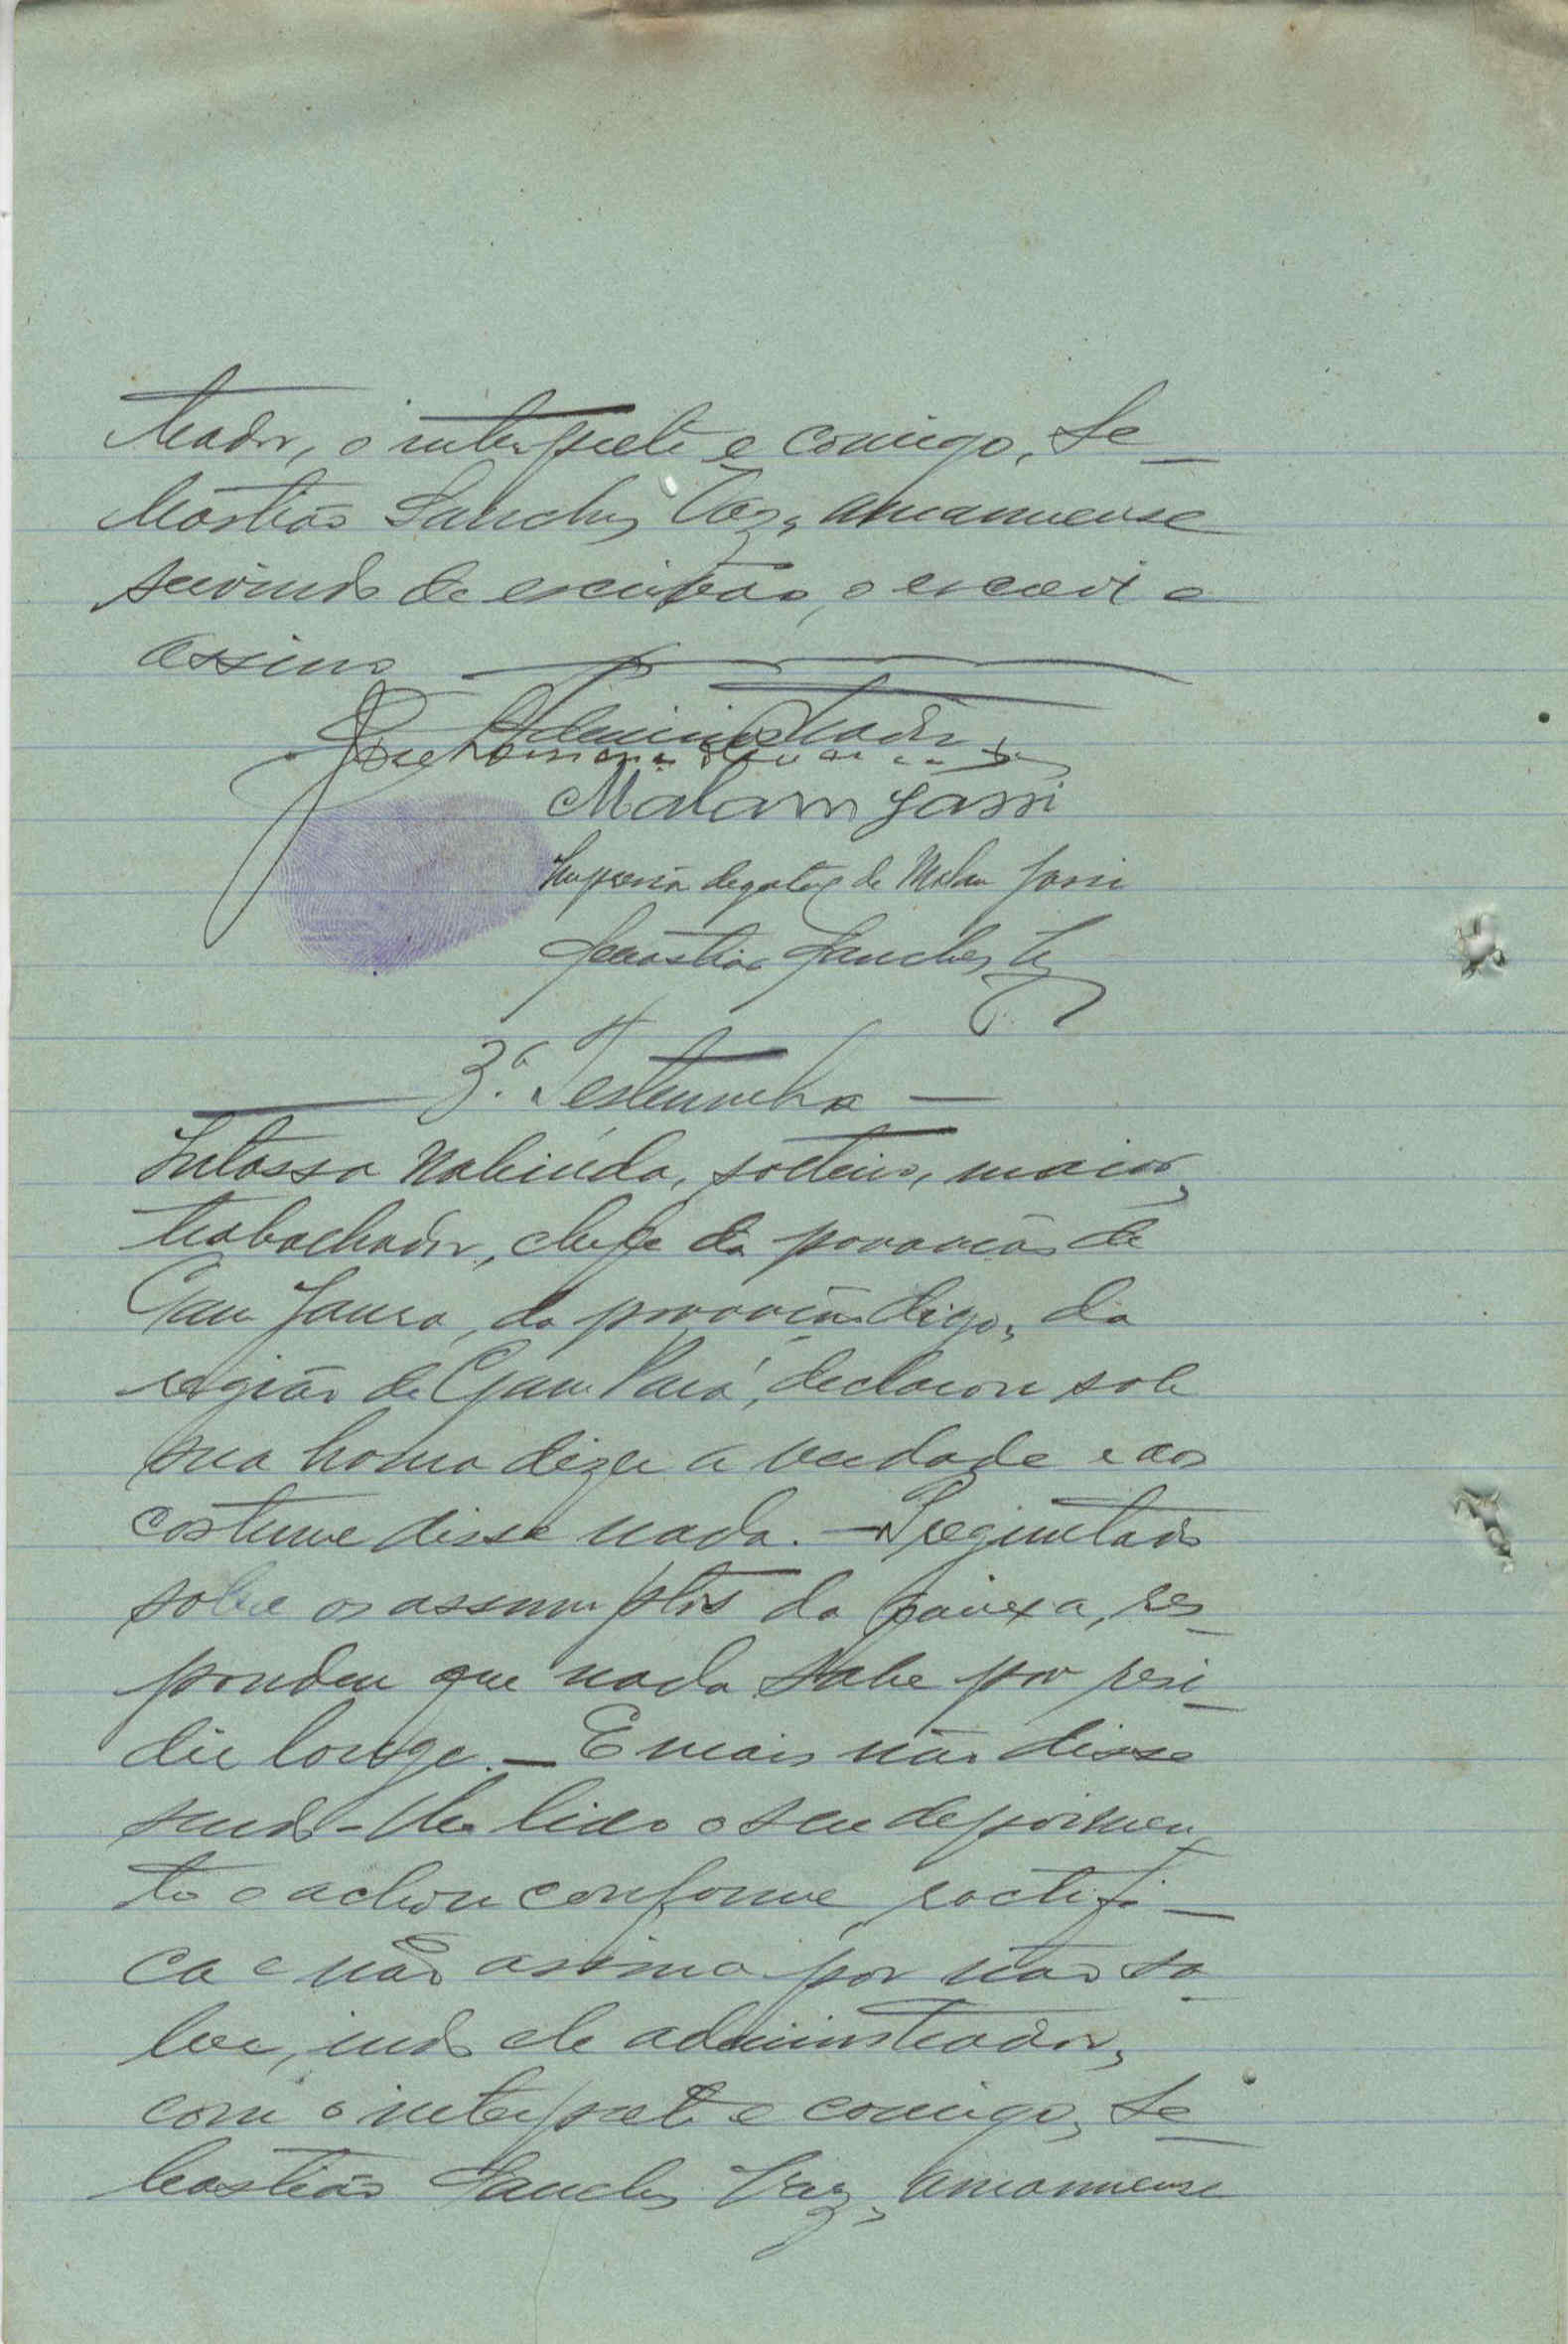 trador, o interprete e comigo, Se-
bastião Sanches Vaz, amanuense
servindo de escrivão, o escrevi e
assino
O Administrador
Malam Jassi
Impressão degital de Malan Jassi
Sebastião Sanches Vaz
3.ª Testemunha
Nabinda, solteiro, maior,
trabalhador, chefe da povoação de
Gam Jaura, da povoação digo, da
região de Gam Pará, declarou sob
sua honra dizer a verdade e aos
costume disse nada. — Preguntado
sobre os assumptos da queixa, res-
pondeu que nada sabe por resi-
dir longe. — E mais não disse
sendo-lhe lido o seu depoimen
to o achou conforme ractifi-
ca e não assina por não sa-
ber, indo ele administrador,
com o interprete e comigo, Se-
bastião Sanches Vaz, amanuense